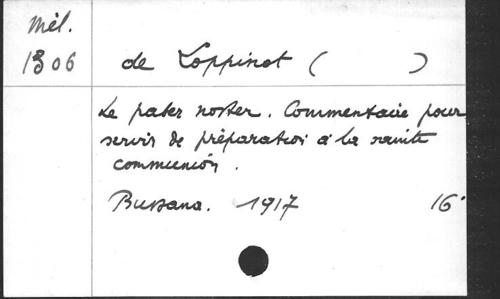 Mél.
1306 de Loppinot ( )
Le pater noster. Commentaire pour
servir de préparation à la sainte
communion.
Bussana. 1917 16°